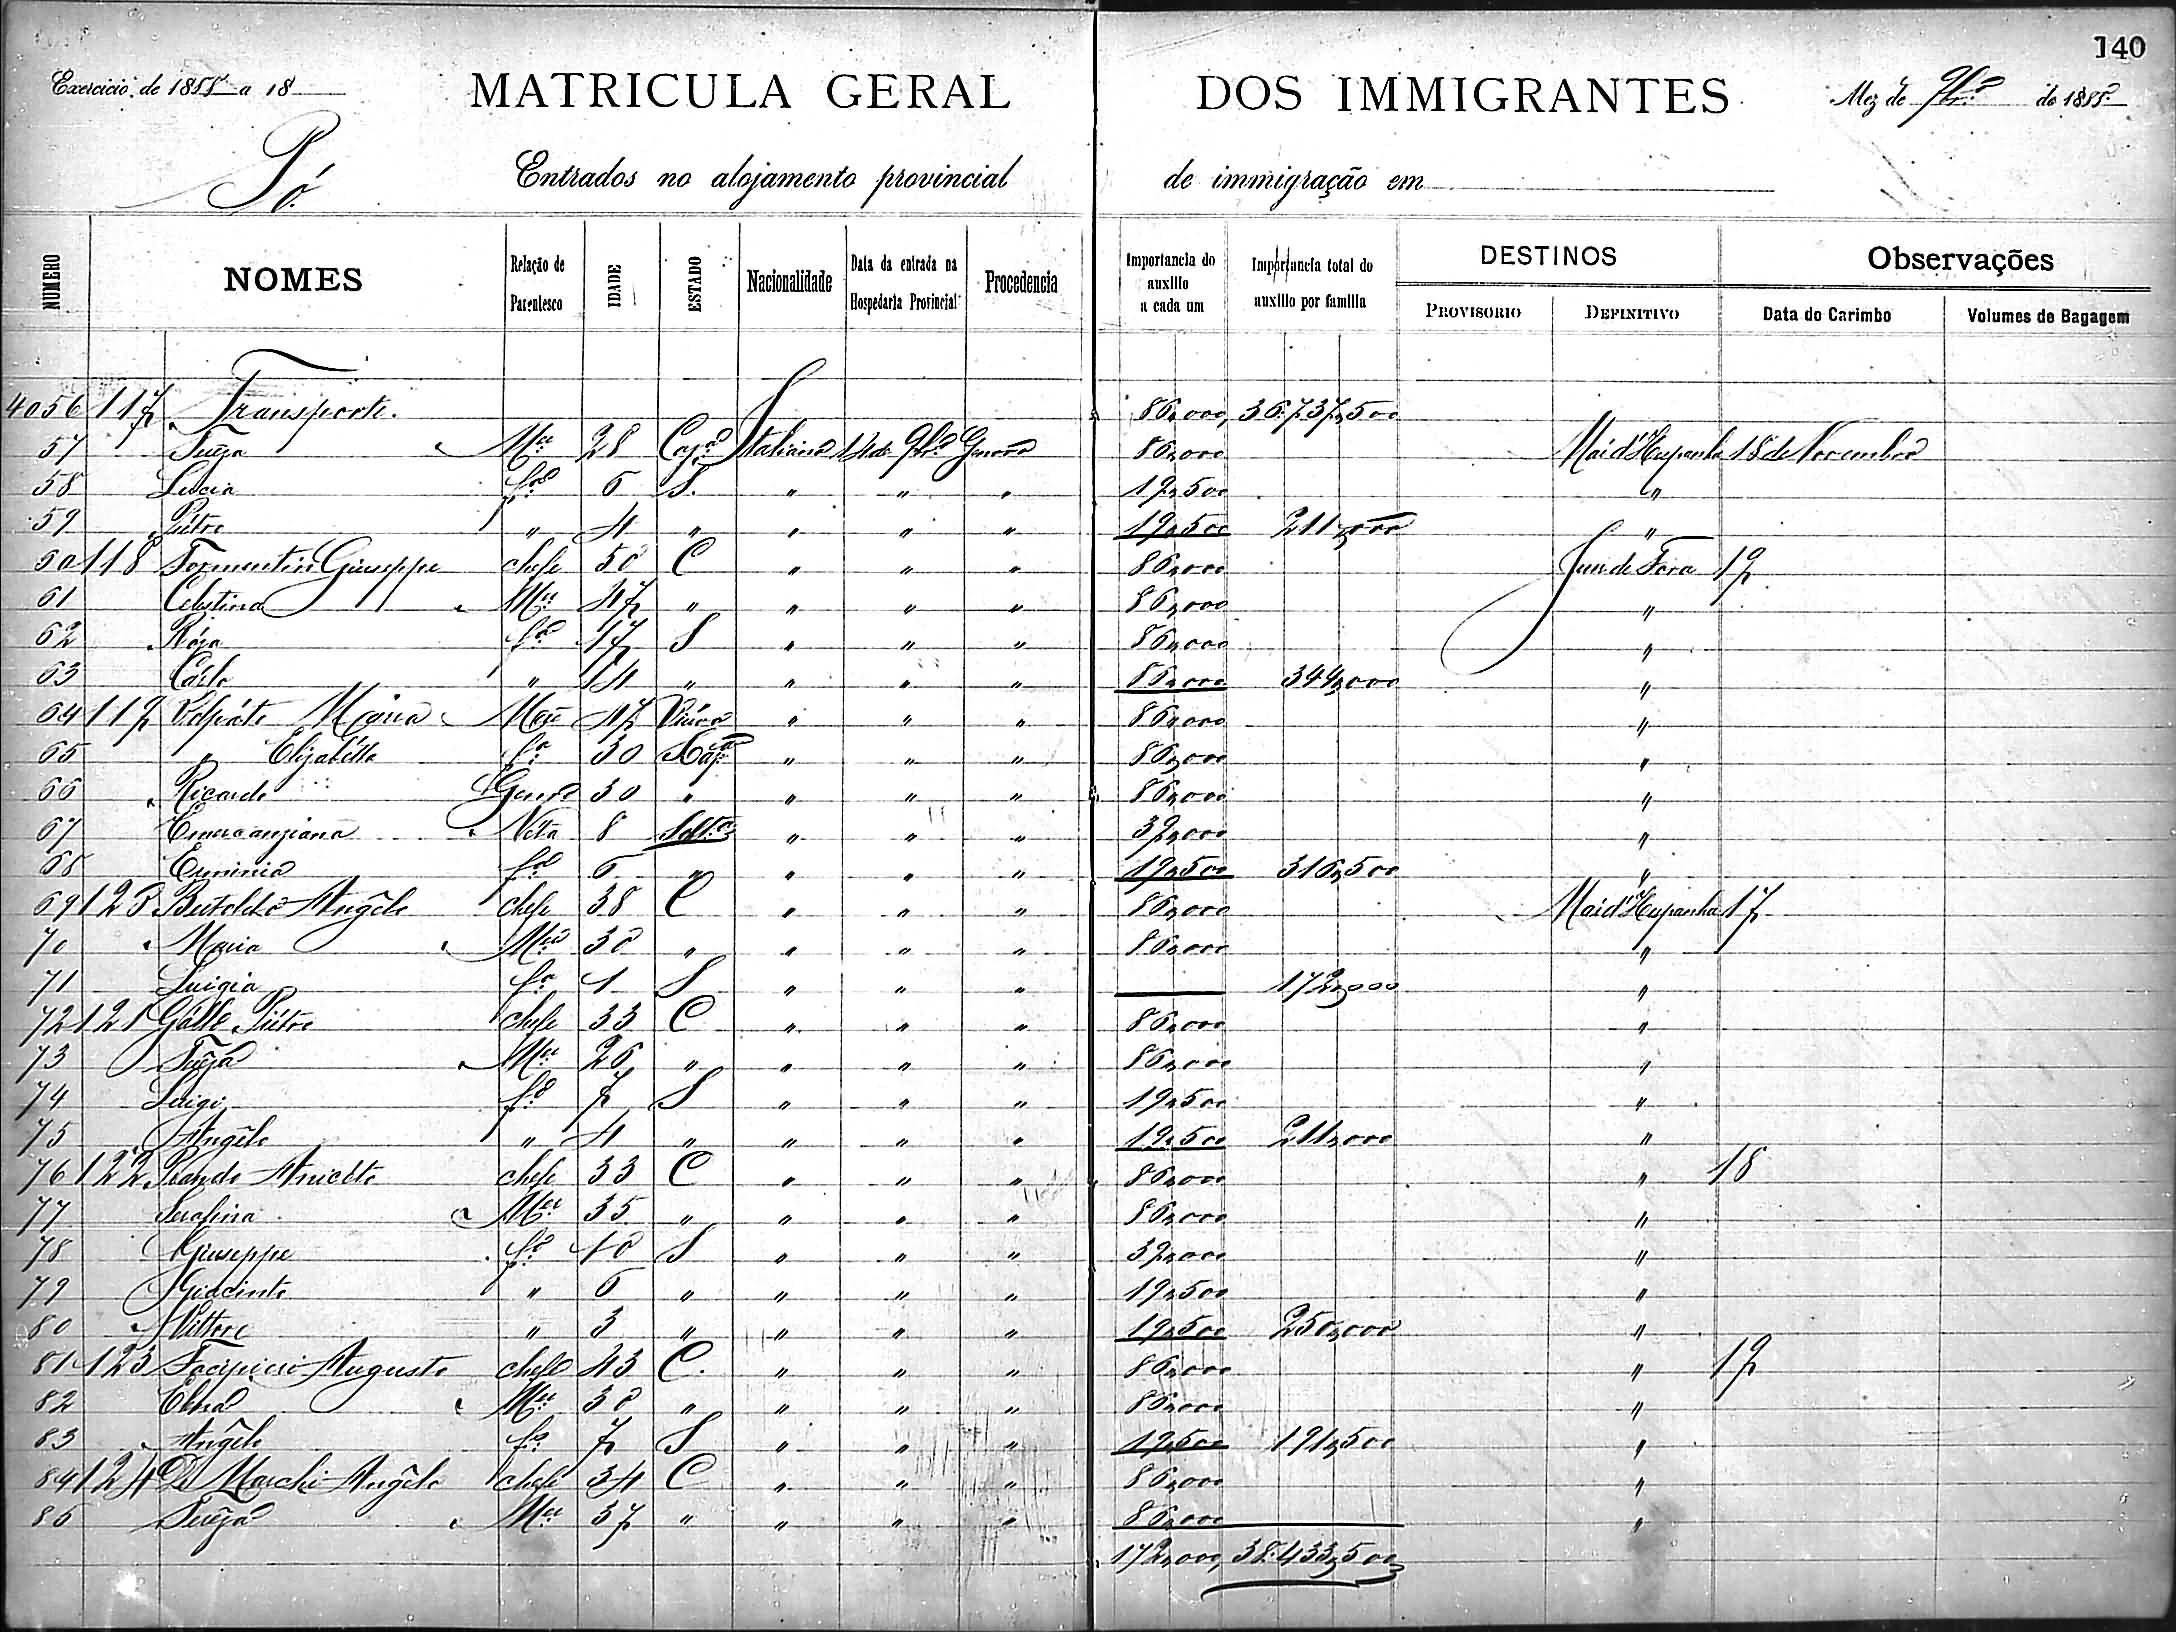 140
Exercicio de 1888 a 18
MATRICULA GERAL DOS IMMIGRANTES
Mez de 9br.o de 1888
Pó.
Entrados no alojamento provincial de immigração em
NUMERO NOMES Relação de Parentesco IDADE ESTADO Nacionalidade Data da entrada na Hospedaria Provincial Procedencia Importancia do auxilio a cada um Importancia total do auxilio por familia DESTINOS PROVISORIO DEFINITIVO Observações Data do Carimbo Volumes de Bagagem
4056 117 Transporte. 86,000, 36.737,500
57 Tereza Mer 28 Caz.a Italiana 14 de 9br.o Genova 86,000 Mar d'Hespanha 18 de Novembro
58 Lucia f.a 6 S. " " " 19,500 "
59 " Piétro " 4 " " " " 19,500 211,000 "
60 118 Tormentin Giuseppe chefe 50 C " " " 86,000 Juis de Fora 19
61 Celestina Mer 47 " " " " 86,000 "
62 " Róza f.a 17 S " " " 86,000 "
63 Carlo " 14 " " " " 86,000 344,000 "
64 119 Volpáto Maria Mãe 47 Viuva " " " 86,000 "
65 " Elizabétta f.a 30 Caz.a " " " 86,000 "
66 " Ricardo Genro 30 " " " " 86,000 "
67 Emeranziana Neta 8 Solt.a " " " 39,000 "
68 Erminia f.a 6 " " " " 19,500 316,500 "
69 120 Bertoldo Angélo chefe 38 C " " " 86,000 Mar d'Hespanha 17
70 " Maria Mer 30 " " " " 86,000 "
71 Luigia f.a 1 S " " " 172,000 "
72 121 Gallo Piétro chefe 33 C " " " 86,000 "
73 Tereza Mer 26 " " " " 86,000 "
74 Luigi f.o 7 S " " " 19,500 "
75 " Angélo " 4 " " " " 19,500 211,000 "
76 122 Anicéto chefe 33 C " " " 86,000 " 18
77 Serafina Mer 35 " " " " 86,000 "
78 Giuseppe f.o 10 S " " " 39,000 "
79 Giacinto " 6 " " " " 19,500 "
80 " Vittore " 3 " " " " 19,500 250,000 "
81 123 Augusto chefe 43 C. " " " 86,000 " 19
82 Elena Mer 30 " " " " 86,000 "
83 " Angélo f.o 7 S " " " 19,500 191,500 "
84 124 De Marchi Angélo chefe 34 C " " " 86,000 "
85 Tereza Mer 37 " " " " 86,000 "
172,000, 38.433,500